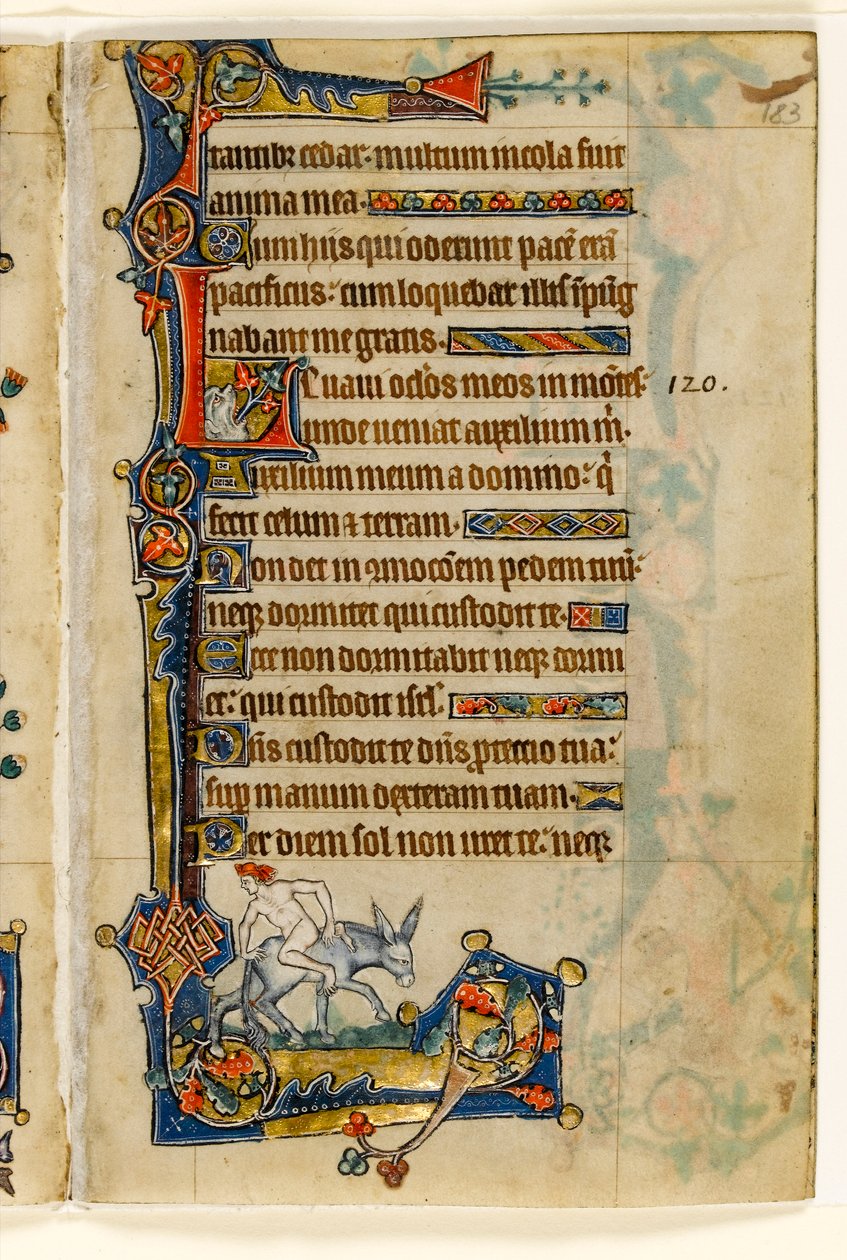 183
tantibz cedar. multum incola fuit
anima mea.
Cum hiis qui oderunt pacē erā
pacificus: cum loquebar illis īpūg
nabant me gratis.
Leuaui oclōs meos in mōtes: 120.
unde ueniat auxilium m̄.
Auxilium meum a domino: q̄
fecit celum ⁊ terram.
Non det in ꝯmocōem pedem tuū:
neqꝫ dormitet qui custodit te.
Ecce non dormitabit neqꝫ dormi
et: qui custodit isrl̄.
Dn̄s custodit te dn̄s ꝓteccio tua:
sup manum dexteram tuam.
Per diem sol non uret te: neqꝫ